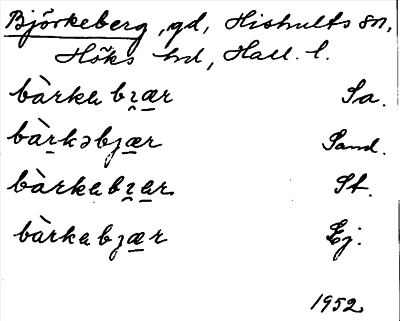 Björkeberg, gd, Hishults sn,
Höks hd, Hall. l.
bàrka bɀ̯æ̱r Sa.
bàr̠kəbjæ̱r Sand.
bàrkabɀ̯a̱r St.
bàrkabɀæ̱r Ej.
1952